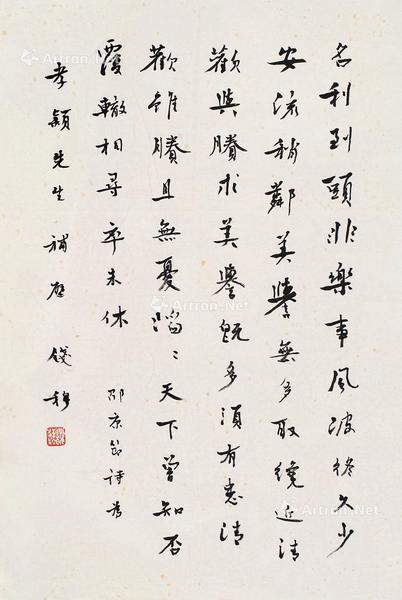 名利到頭非樂事風波終久少
安流稍鄰美譽無多取纔近清
歡與賸求美譽既多須有患清
歡雖賸且無憂滔〻天下曾知否
覆轍相尋卒未休 邵康節詩為
孝穎先生補壁 錢穆
Artron.Net